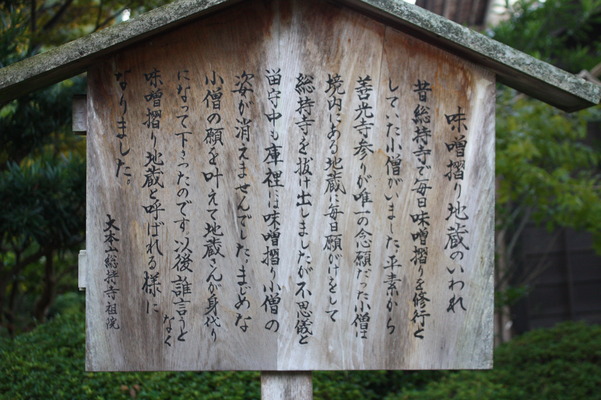 味噌摺り地蔵のいわれ
昔総持寺で毎日味噌摺りを修行と
していた小僧がいました。平素から
善光寺参りが唯一の念願だった小僧は
境内にある地蔵に毎日願がけをして
総持寺を抜け出しましたが不思議と
留守中も庫裡には味噌摺り小僧の
姿が消えませんでした。まじめな
小僧の願を叶えて地蔵さんが身代り
になって下さったのです。以後誰言うとなく
味噌摺り地蔵と呼ばれる様に
なりました。
大本山総持寺祖院